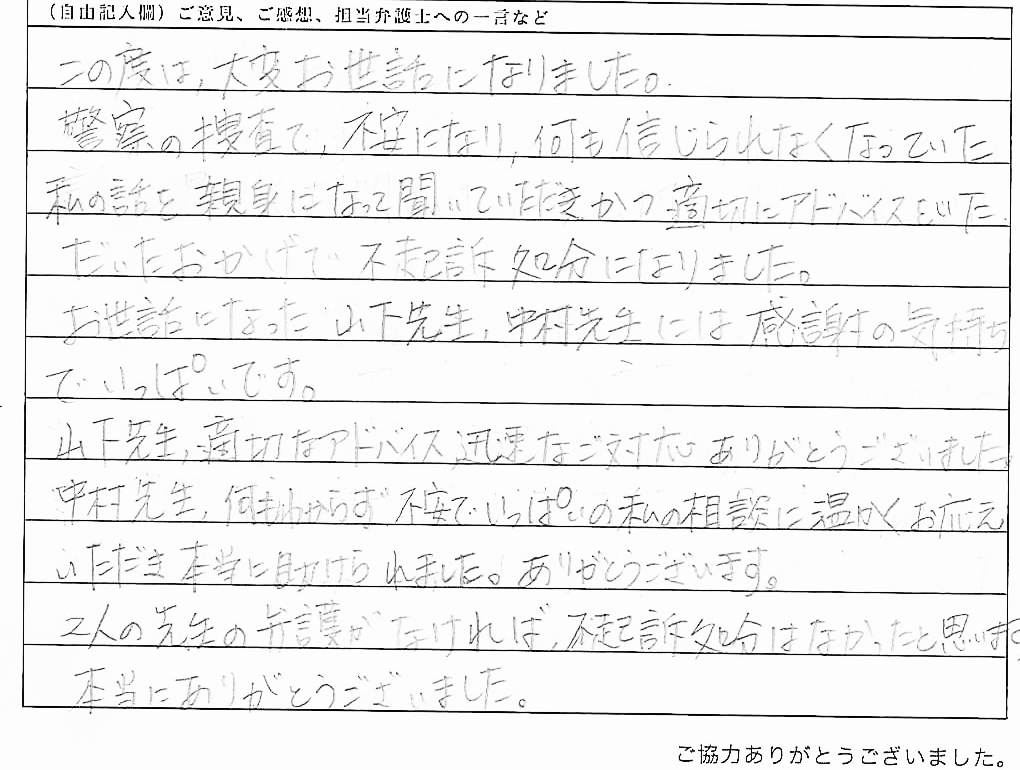 （自由記入欄）ご意見、ご感想、担当弁護士への一言など
この度は、大変お世話になりました。
警察の捜査で、不安になり、何も信じられなくなっていた
私の話を親身になって聞いていただきかつ適切にアドバイスをいた
だいたおかげで不起訴処分になりました。
お世話になった山下先生、中村先生には感謝の気持ち
でいっぱいです。
山下先生、適切なアドバイス迅速なご対応ありがとうございました。
中村先生、何もわからず不安でいっぱいの私の相談に温かくお応え
いただき本当に助けられました。ありがとうございます。
2人の先生の弁護がなければ、不起訴処分はなかったと思います
本当にありがとうございました。
ご協力ありがとうございました。